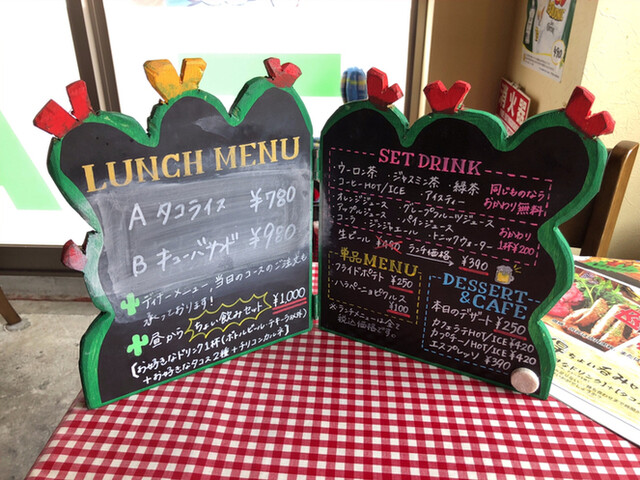 LUNCH MENU
A タコライス ¥780
B キューバサンド ¥980
ディナーメニュー、当日のコースのご注文も
承っております!
昼からちょい飲みセット ¥1,000
(お好きなドリンク1杯(ボトルビール・テキーラ以外)
+お好きなタコス2種+チリコンカン小)
SET DRINK
ウーロン茶 ・ジャスミン茶 ・緑茶
コーヒーHOT/ICE ・アイスティー
同じものなら
おかわり無料
オレンジジュース ・グレープフルーツジュース
アップルジュース ・パインジュース
コーラ ・ジンジャエール ・トニックウォーター
おかわり
1杯¥200
生ビール ¥490 ランチ価格 ¥390
単品MENU
フライドポテト ¥250
ハラペーニョピクルス
¥100
※ランチメニューは全て
税込価格です。
DESSERT
&CAFE
本日のデザート ¥250
カフェラテHOT/ICE ¥420
カプチーノHOT/ICE ¥420
エスプレッソ ¥390
消火器